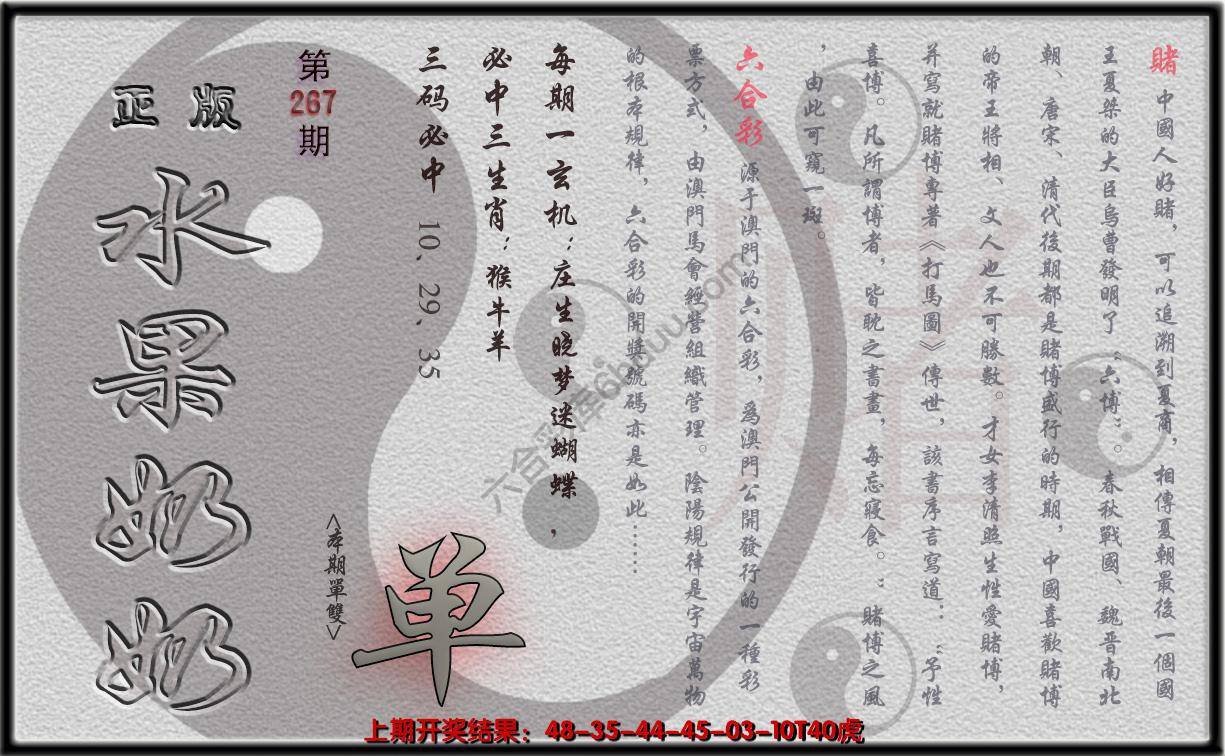 賭 中國人好賭，可以追溯到夏商，相傳夏朝最後一個國
王夏桀的大臣烏曹發明了“六博”。春秋戰國、魏晋南北
朝、唐宋、清代後期都是賭博盛行的時期，中國喜歡賭博
的帝王將相、文人也不可勝數。才女李清照生性愛賭博，
并寫就賭博專著《打馬圖》傳世，該書序言寫道：“予性
喜博。凡所謂博者，皆耽之書畫，每忘寢食。”賭博之風
，由此可窺一斑。
六合彩 源于澳門的六合彩，爲澳門公開發行的一種彩
票方式，由澳門馬會經營組織管理。陰陽規律是宇宙萬物
的根本規律，六合彩的開獎號碼亦是如此……
每期一玄机：庄生晓梦迷蝴蝶，
必中三生肖：猴牛羊
三码必中 10、29、35
第
267
期
<本期單雙>
单
正版
水果奶奶
六合彩库6huuu.com
上期开奖结果：48-35-44-45-03-10T40虎